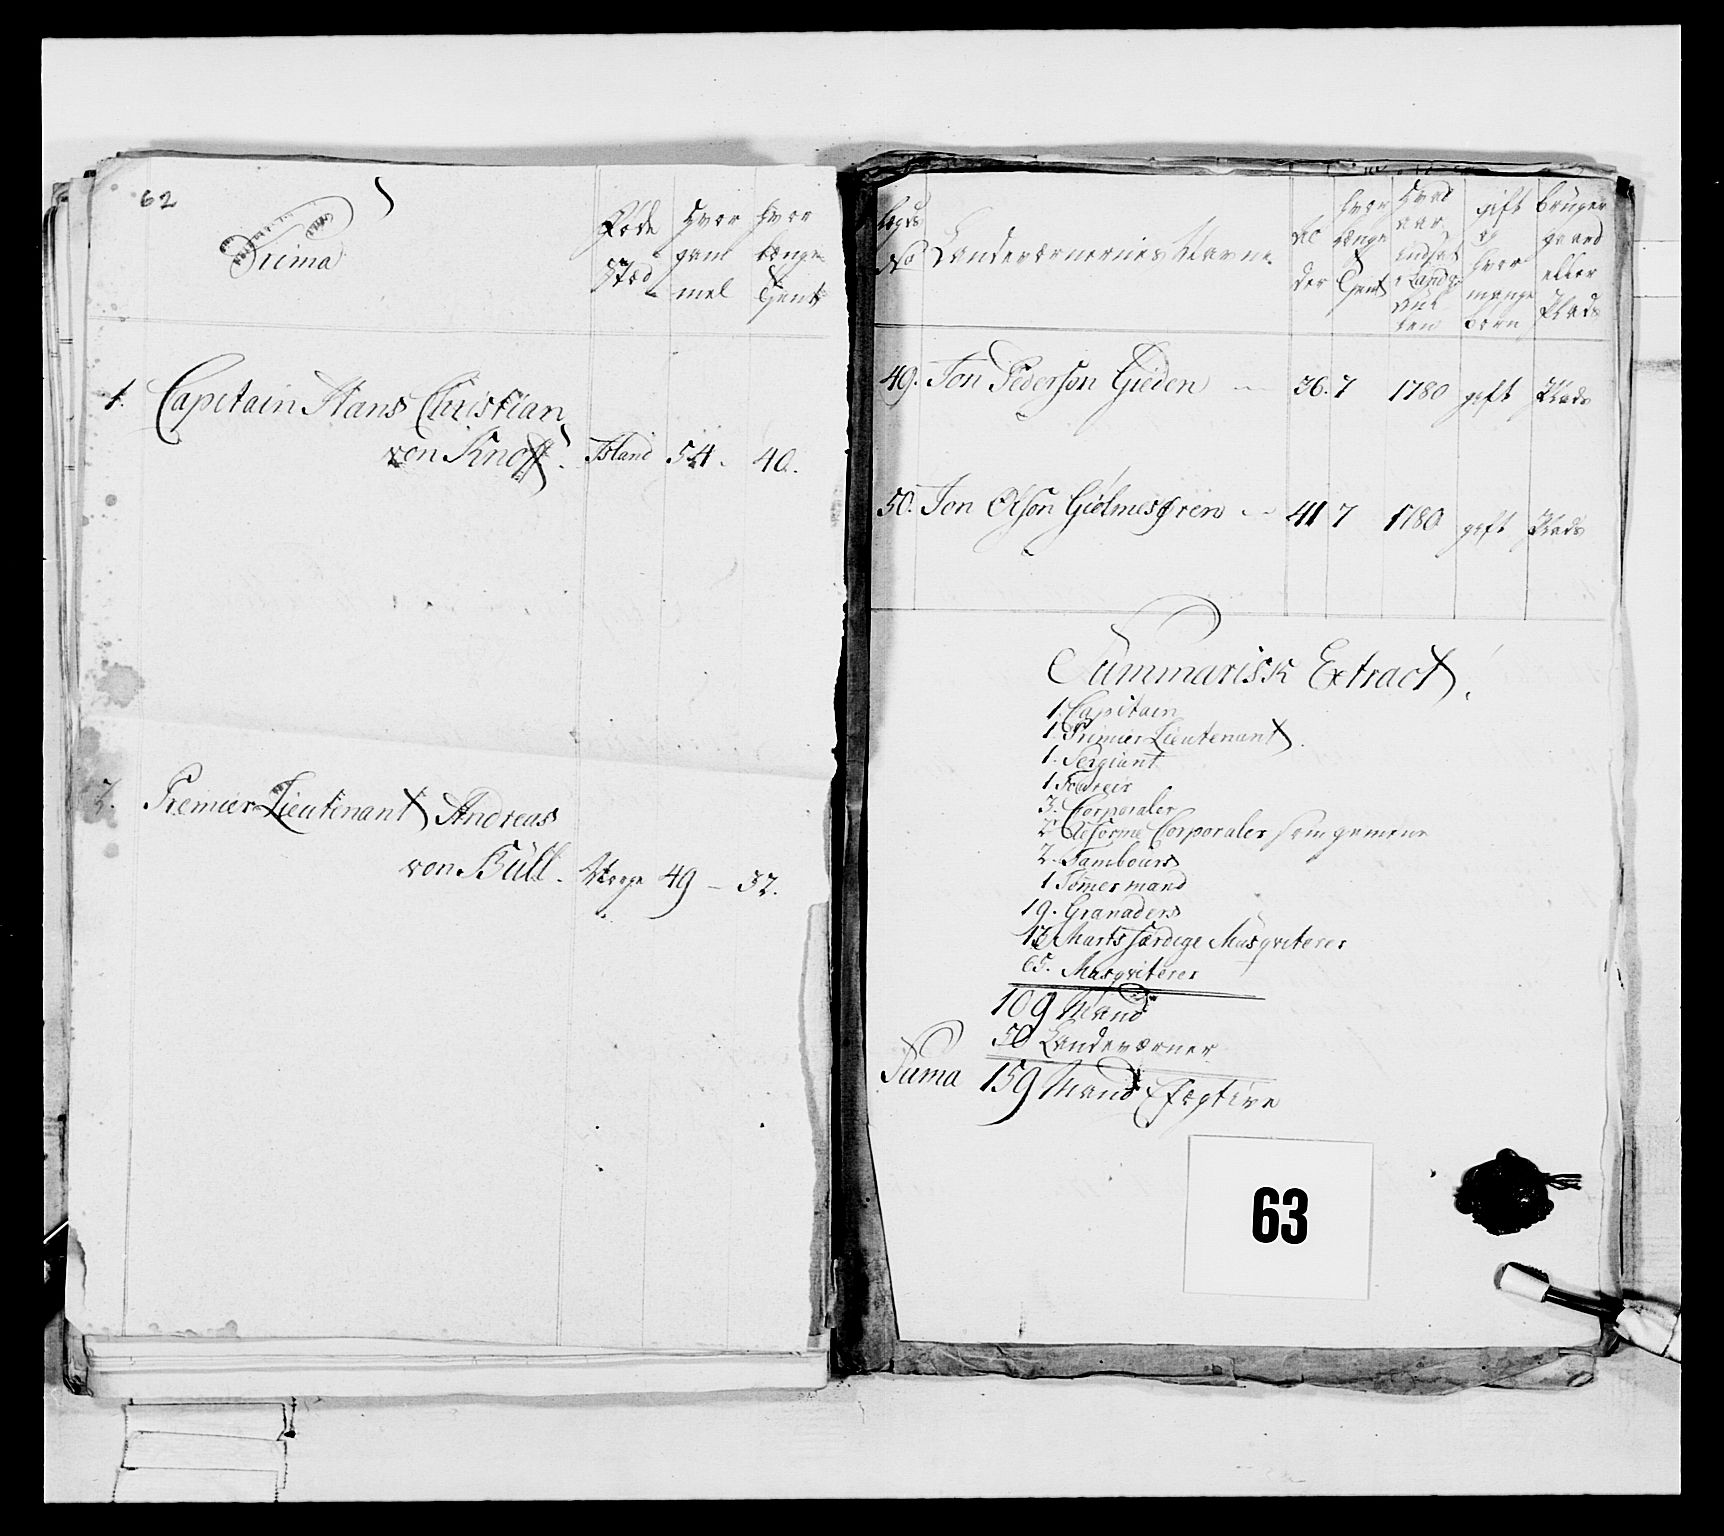 62
Prima
Føde
Stæd
Hvor
gam
mel
Hvor
længe
tient
1. Capitain Hans Christian
von Knoff. Island 54. 40.
2. Premier Lieutenant Andreas
von Büll. Norge 49 - 32.
Lægds
No
Landeværnernes Navne
Al
der
hvor
længe
tient
Hvad
aar
indsat
i Land
gift
og
hvor
mange
børn
bruger
gaard
eller
Plads
49. Jon Pederson Gieden 36. 7 1780 gift Plads
50. Jon Olson Gielmesøren 41 7 1780 gift Plads
Summarisk Extract.
1. Capitain
1. Primier Lieutenant
1. Sergiant
1. Foureir
3. Corporaler
2 Reforme Corporaler som gemene
2. Tambours
1 Tømermand
19. Granaders
13 Marts færdige Musqviterer
65. Musqviterer
109 Mand
50 Landeværner
Suma 159 Mand Efegtive
63